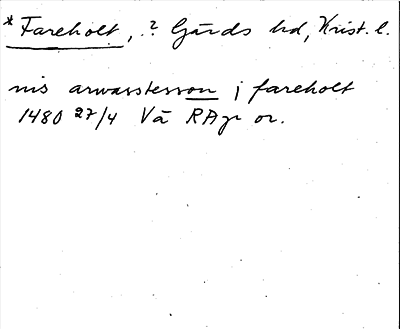 * Fareholt, ? Gärds hd, Krist. l.
nis arwasstersson j fareholt
1480 27/4 Vä RApr or.